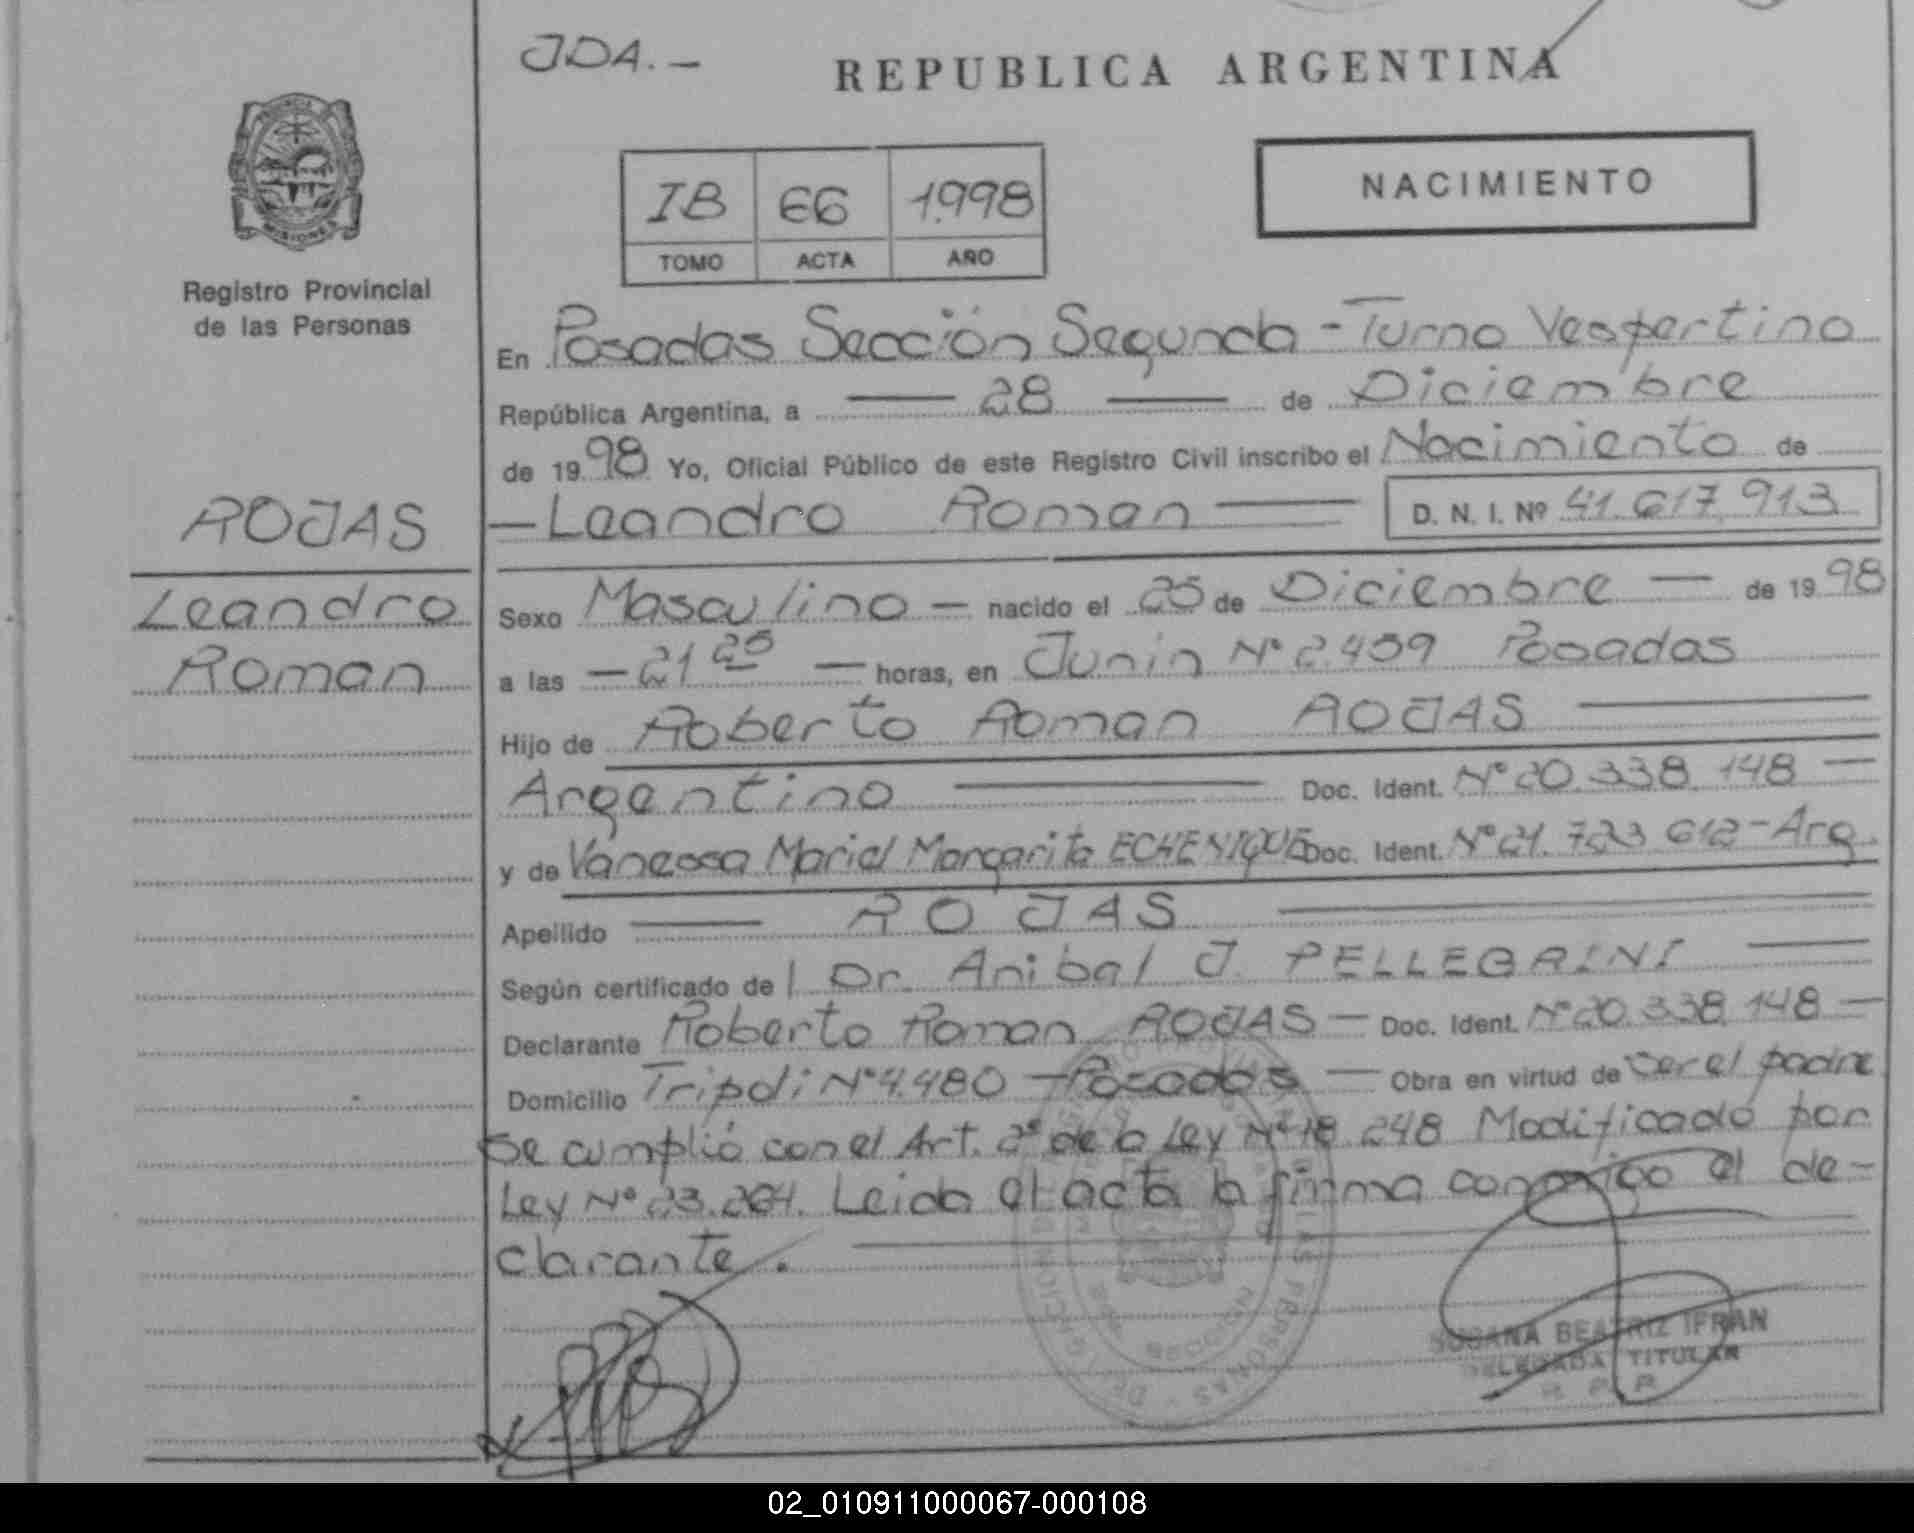 JDA.-
REPUBLICA ARGENTINA
PROVINCIA
MISIONES
Registro Provincial
de las Personas
IB 66 1.998
TOMO ACTA AÑO
NACIMIENTO
En Posadas Sección Segunda - Turno Vespertino
República Argentina, a — 28 — de Diciembre
de 1998 Yo, Oficial Público de este Registro Civil inscribo el Nacimiento de
— Leandro Roman — D. N. I. Nº 41.617.913
ROJAS
Leandro
Roman
Sexo Masculino — nacido el 25 de Diciembre — de 1998
a las — 21 25 — horas, en Junin Nº 2.459 Posadas
Hijo de Roberto Roman ROJAS
Argentino — Doc. Ident. Nº 20.338.148 —
y de Vanessa Mariel Margarita ECHENIQUE Doc. Ident. Nº 21.723.612 - Arg.
Apellido — ROJAS —
Según certificado del Dr. Anibal J. PELLEGRINI —
Declarante Roberto Roman ROJAS — Doc. Ident. Nº 20.338.148 —
Domicilio Tripoli Nº 4.480 - Posadas — Obra en virtud de ser el padre
Se cumplió con el Art. 2º de la Ley Nº 18.248 Modificado por
Ley Nº 23.264. Leida el acta la firma conmigo el de-
clarante.
SUSANA BEATRIZ IFRAN
DELEGADA TITULAR
R. P. P.
02_010911000067-000108